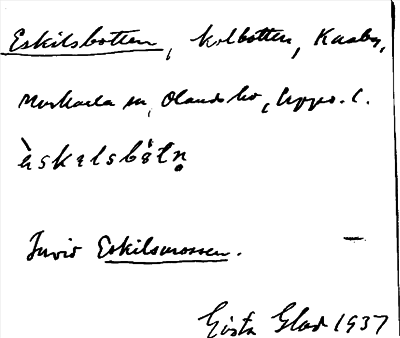 Eskilsbotten, kolbotten, Kusby,
Markaela sn, Olands hd, Upps. l.
èskəlsbåtṇ
Invid Eskilsmossen. –
Gösta Glad 1937